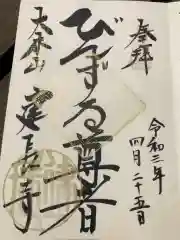 奉拝
令和三年
四月二十五日
びんずる尊者
大本山
建長寺